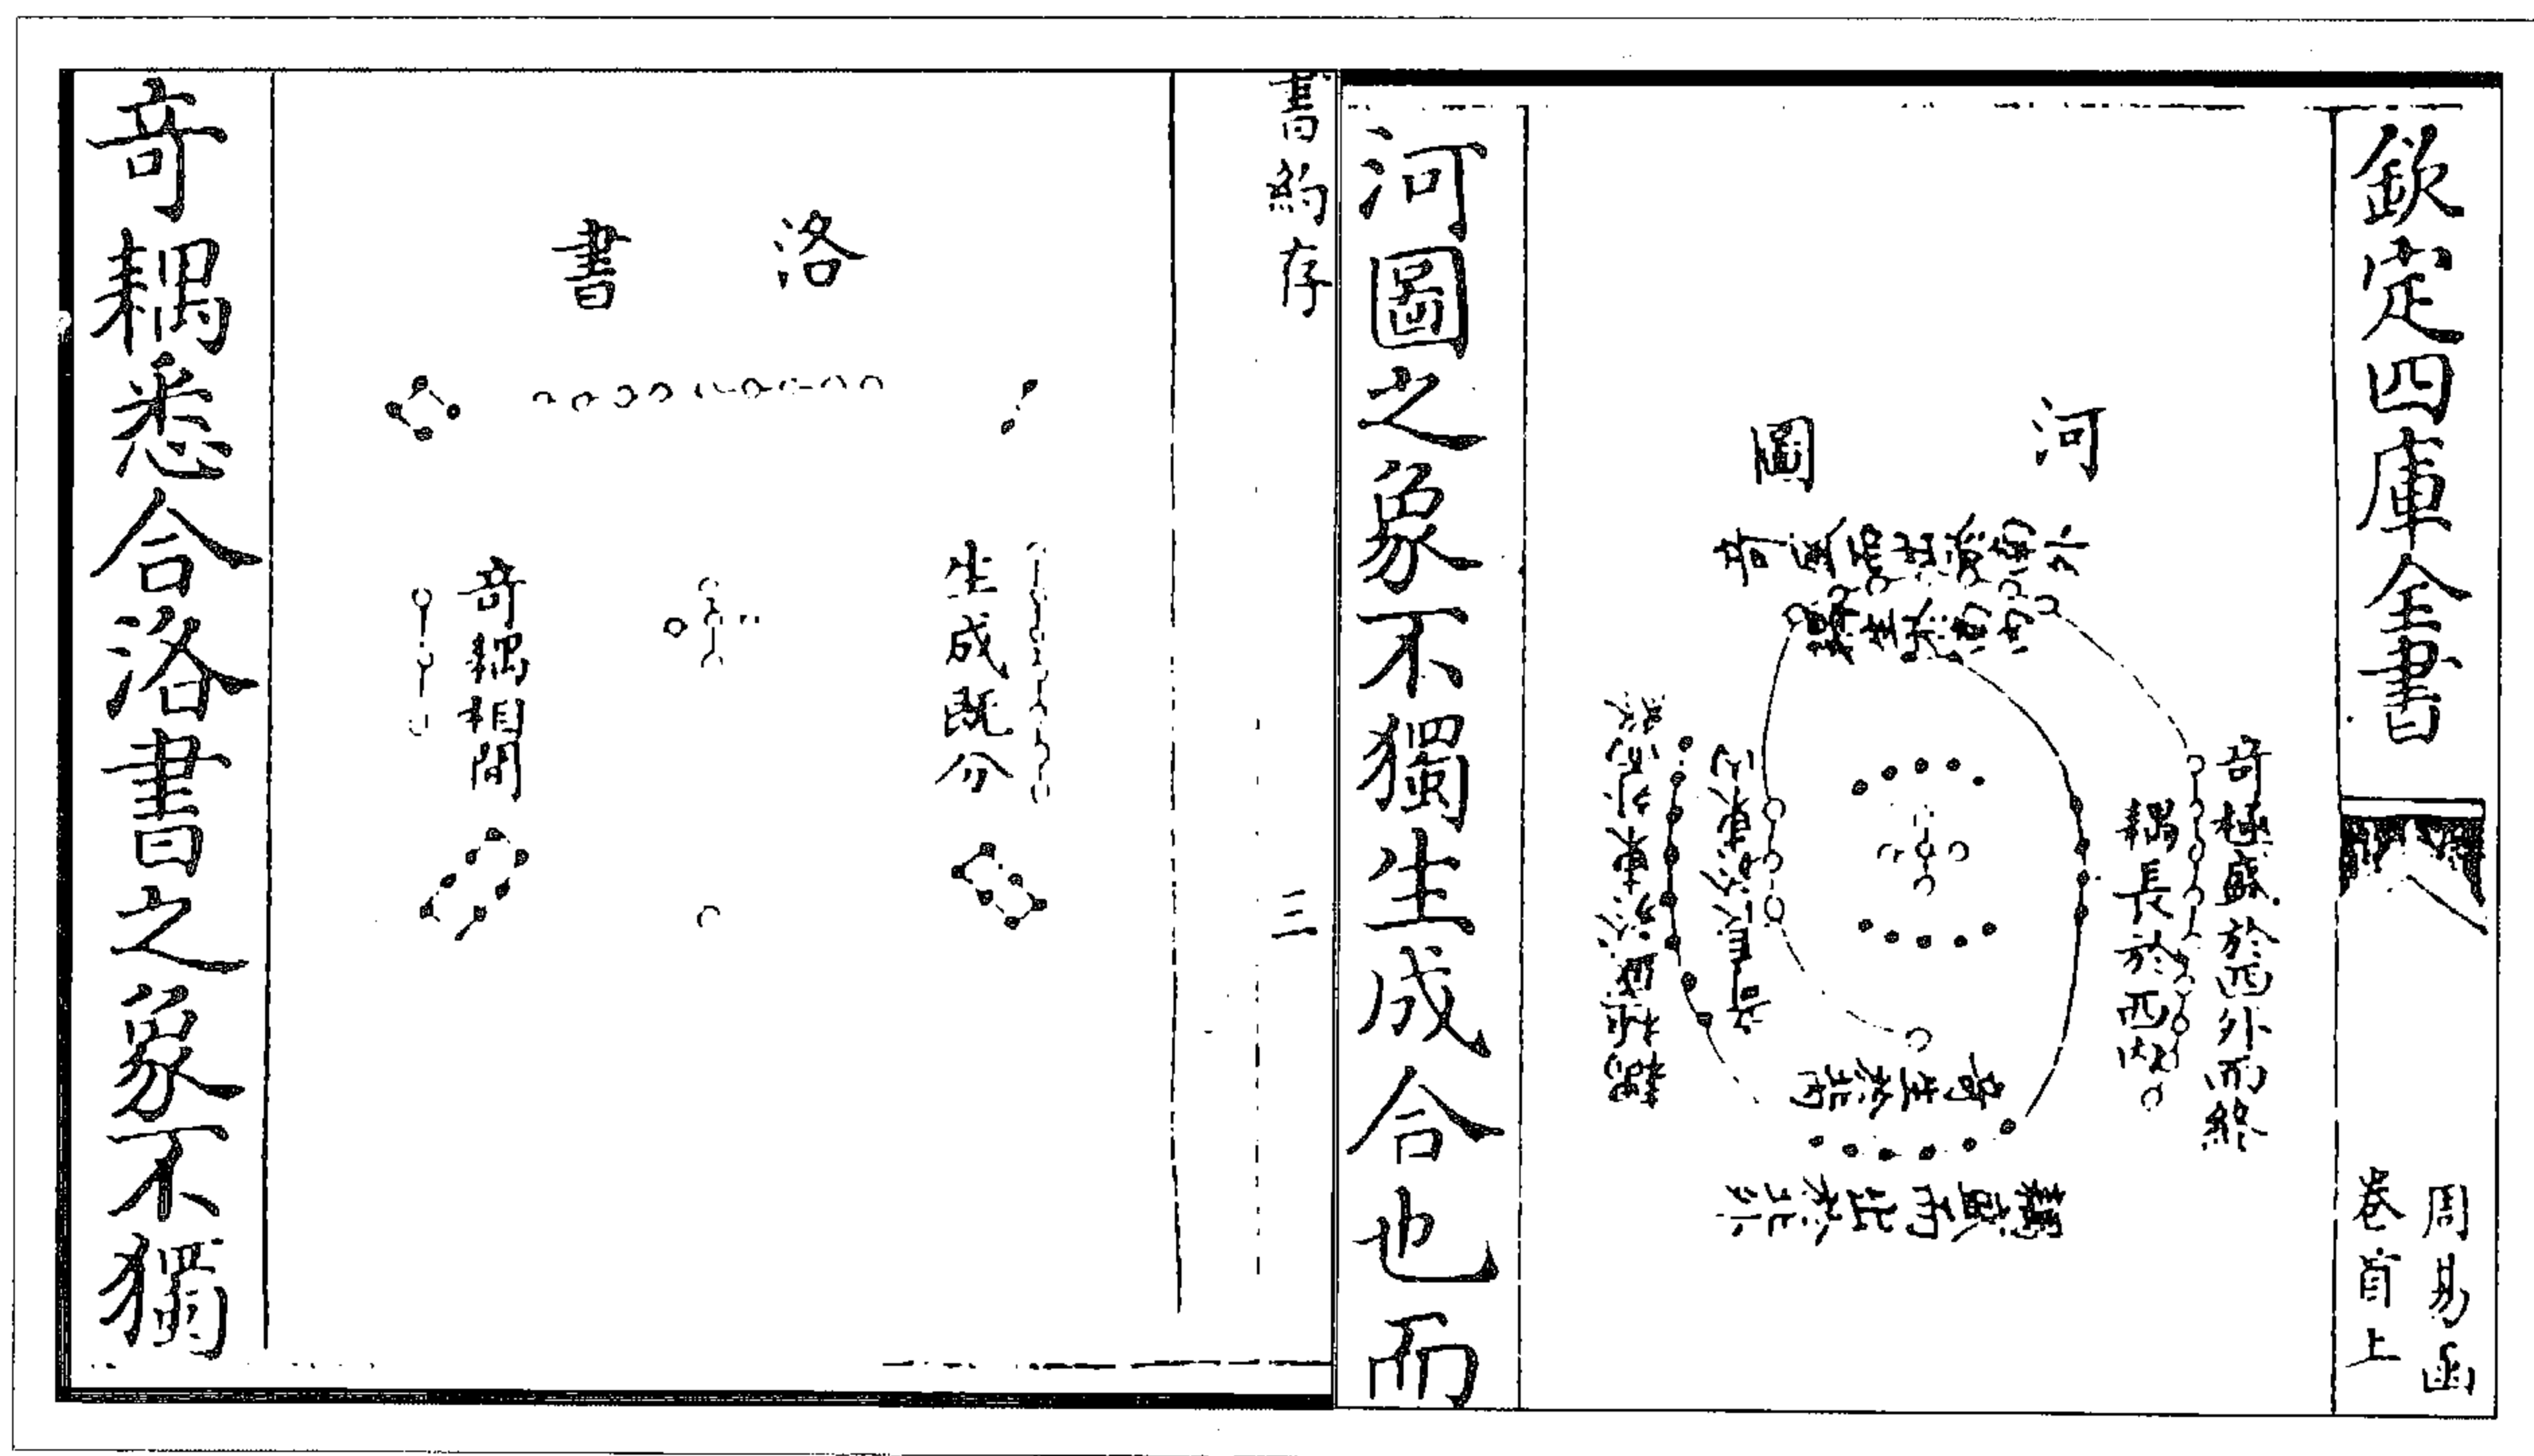 欽定四庫全書
周易函
卷首上
河圖
奇極盛於西外而終
耦長於西內
奇生於北內
河圖之象不獨生成合也而
書約存
三
洛書
生成既分
奇耦相間
奇耦悉合洛書之象不獨